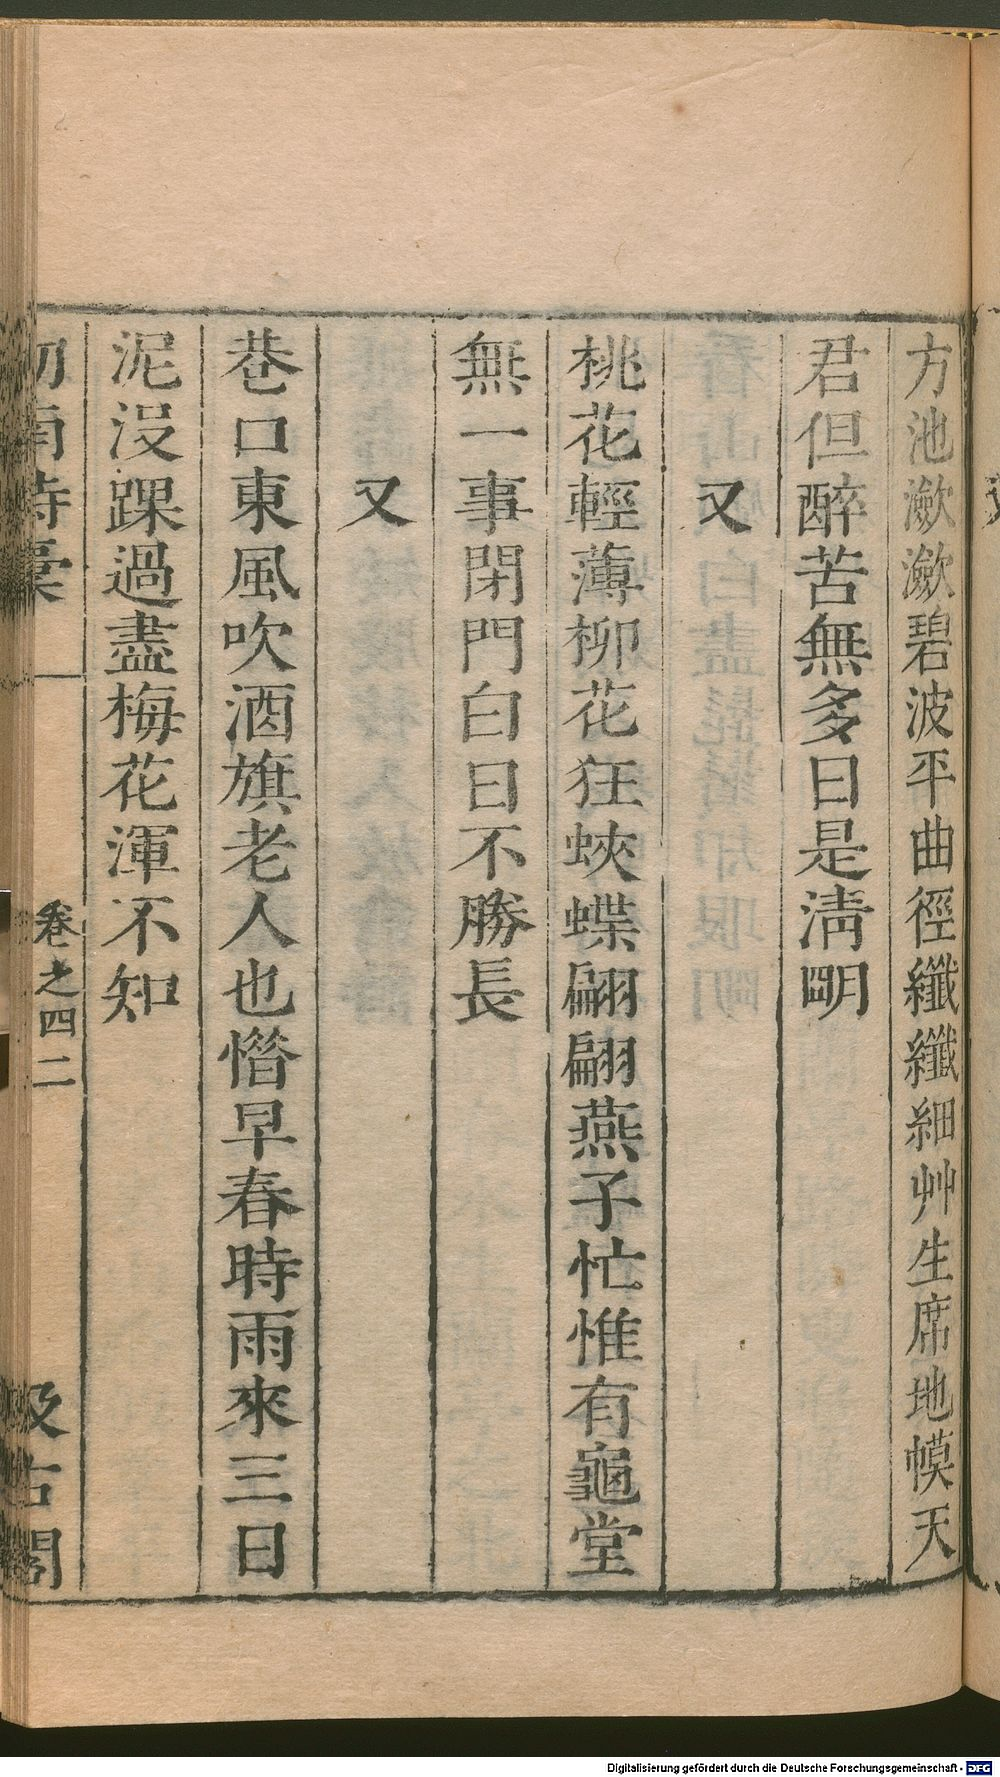 方池瀲瀲碧波平曲徑纖纖細艸生席地幙天
君但醉苦無多日是淸明
又
桃花輕薄柳花狂蛺蝶翩翩燕子忙惟有龜堂
無一事閉門白日不勝長
又
巷口東風吹酒旗老人也憯早春時雨來三日
泥沒踝過盡梅花渾不知
劒南詩稾
卷之四二
汲古閣
Digitalisierung gefördert durch die Deutsche Forschungsgemeinschaft - DFG